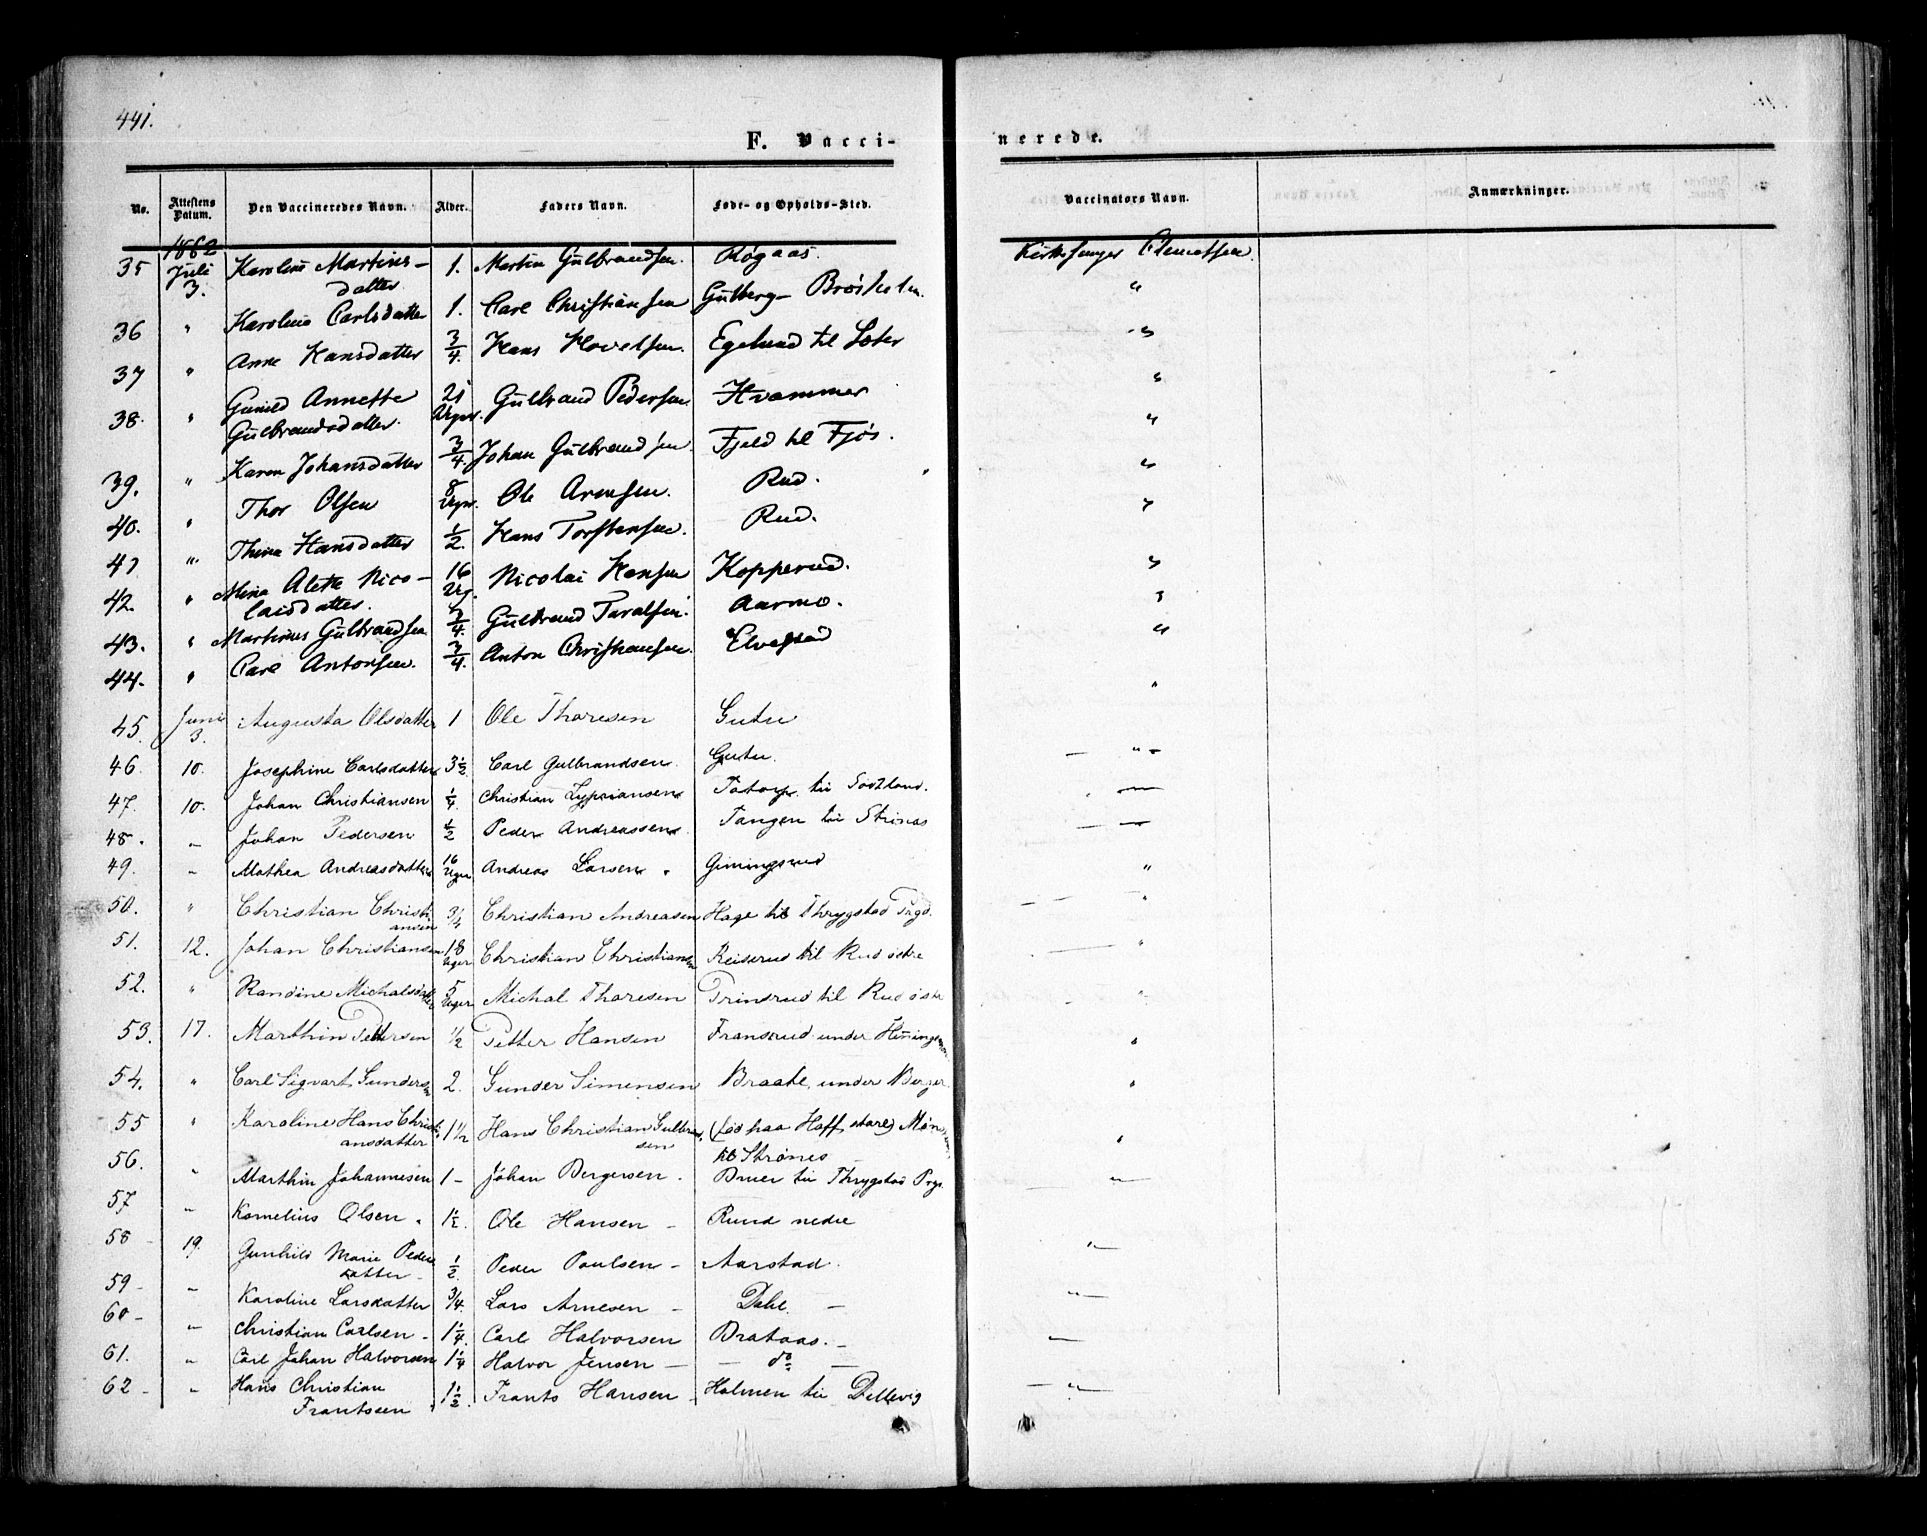 441.
F. Vacci-
nerede.
No. Attestens Datum. Den Vaccineredes Navn. Alder. Faders Navn. Føde- og Opholds-Sted. Vaccinators Navn. Anmærkninger.
1862
35 Juli 3. Karoline Martins- 1. Martin Gulbrandsen. Røgaas. Kirkesanger Clemetsen
datter.
36 " Karoline Carlsdatter 1. Carl Christiansen Gutberg- Brøsholm. "
37 " Anne Hansdatter 3/4. Hans Hovelsen. Egelund til Sæter "
38. " Gunild Annette 21 Uger. Gulbrand Pedersen Hvammer "
Gulbrandsdatter.
39. " Karen Johansdatter 3/4. Johan Gulbrandsen Fjeld til Fjøs. "
40. " Thor Olsen 8 Uger. Ole Arnesen. Rud. "
41 " Thina Hansdatter 1/2. Hans Torstensen. Rud. "
42. " Mina Alette Nico- 16 Ug. Nicolai Hansen Kopperud. "
laisdatter.
43. " Martinus Gulbrandsen 3/4. Gulbrand Taralsen Aarmo. "
44. " Carl Antonsen. 3/4. Anton Christiansen. Elvestad "
45. Juni 3. Augusta Olsdatter 1 Ole Thoresen Gutu "
46. 10. Josephine Carlsdatter 3 1/2 Carl Gulbrandsen. Gutu. — " —
47. 10. Johan Christiansen 1/4. Christian Lyprianseen til —
48. „ Johan Pedersen 1/2 Peder Andreassen. Tangen til Strønes — —
49. „ Mathea Andreasdatter 16 Uger Andreas Larsen. Giningsrud "
50. " Christian Christi 3/4 Christian Andreasen Hage til Thrygstad Prgd. "
ansen
51. 12. Johan Christiansen 18 Uger Christian Christiansen Reiserud til Rud østre "
52. " Randine Michalsdatter 5 Uger Michal Thoresen Trinsrud til Rud østre "
53. 17. Marthin Pettersen 1/2 Petter Hansen Fransrud under "
54. " Carl Sigvart Gundersen 2. Gunder Simensen Braate, under Berger "
55 " Karoline Hans Christi 1 1/2 Hans Christian Gulbrand (fød paa Hoff store) "
ansdatter sen til Strønes
56. „ Marthin Johannesen 1- Johan Bergersen. Bruer til Thrygstad Prg. — " —
57 „ Kornelius Olsen. 1 1/2. Ole Hansen — Rund nedre
58 - 19. Gunhild Marie Peders 1/2. Peder Poulsen — Aarstad. "—
datter —
59 - „ Karoline Larsdatter 3/4. Lars Arnesen — Dahl. — — " —
60 - „ Christian Carlsen - 1 1/4. Carl Halvorsen Brataas. — —
61. „ Carl Johan Halvorsen 1 1/4 Halvor Jensen — — do —
62 - „ Hans Christian 1 1/2. Frants Hansen - Holmen til Dellevig — " —
Frantseen